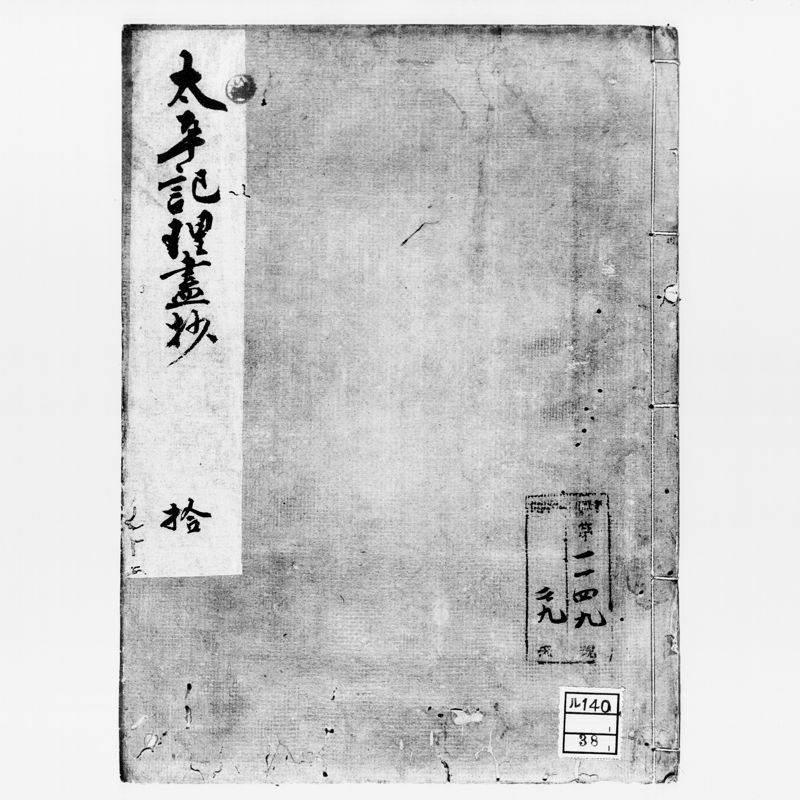 太平記理盡抄
拾
第一一四九
九
ル140
38